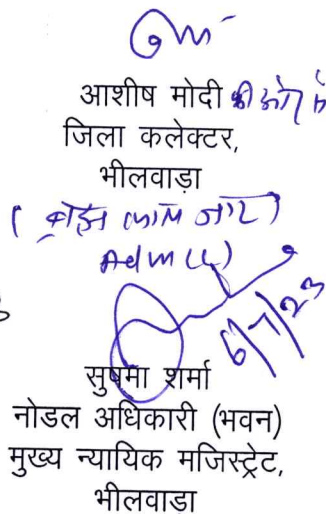 आशीष मोदी की ओर से
जिला कलेक्टर,
भीलवाड़ा
Adm (
6/7/23
सुषमा शर्मा
नोडल अधिकारी (भवन)
मुख्य न्यायिक मजिस्ट्रेट,
भीलवाडा